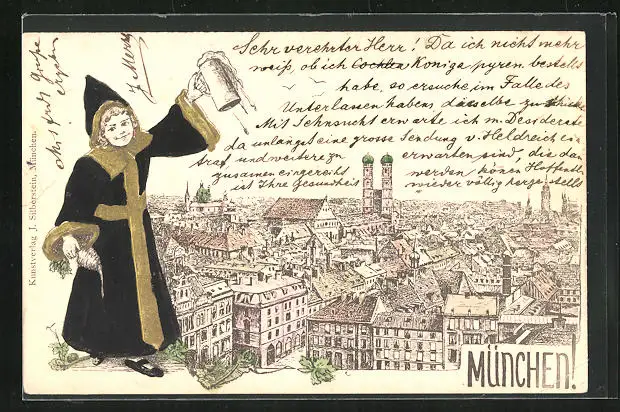 Sehr verehrter Herr! Da ich nicht mehr
weiß, ob ich Cochlea Koniga pyren. bestellt
habe, so ersuche im Falle des
Unterlassen habens, dasselbe zu
Mit Sehnsucht erwarte ich m. Desiderate
da unlängst eine grosse Sendung v. Heldreich ein
traf und weitere zu erwarten sind, die dan
zusamen eingereiht werden könen Hoffentl.
ist Ihre Gesundheit wieder völlig hergestellt
Kunstverlag J. Silberstein, München.
MÜNCHEN!